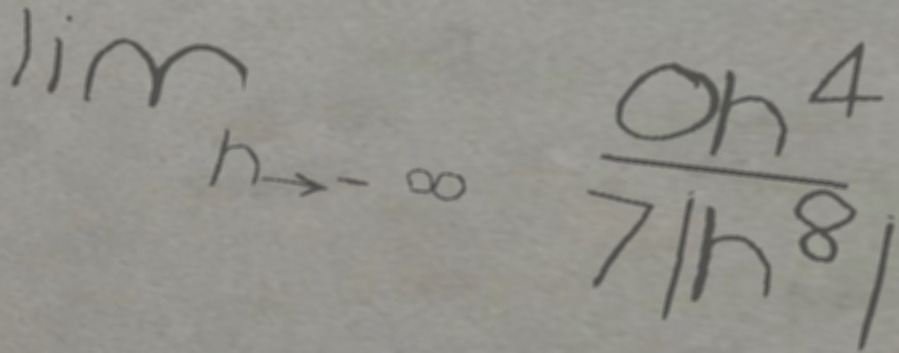 lim_{h→-∞} \frac{0h^4}{7|h^8|}